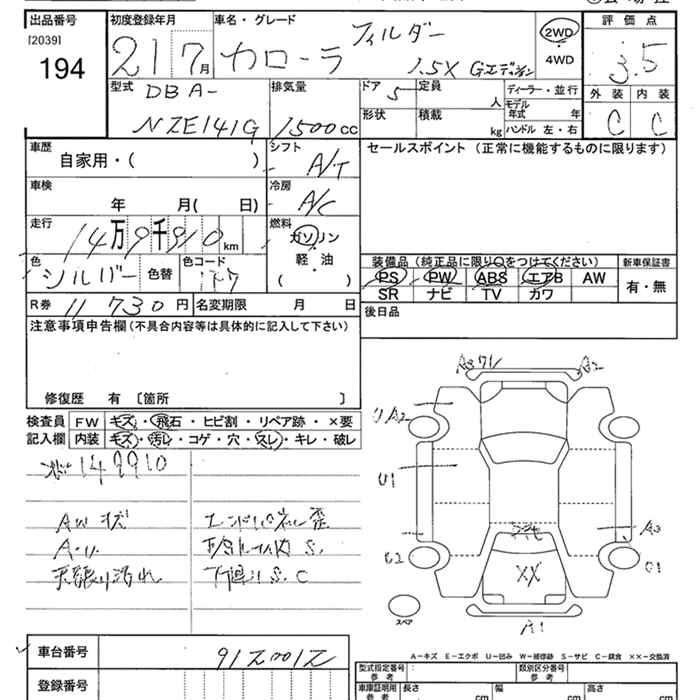 出品番号 初度登録年月 車名・グレード 評価点
[2039]
194 21 7月 カローラ フィルダー 1.5X Gエディション 2WD・4WD 3.5
型式 DBA- 排気量 ドア 5 定員 人 ディーラー・並行 外装 内装
NZE141G 1500cc 形状 積載 kg モデル年式 年 ハンドル 左・右 C C
車歴 自家用・( ) シフト A/T セールスポイント(正常に機能するものに限ります)
車検 年 月( 日) 冷房 A/C
走行 14万9千910km 燃料 ガソリン
軽・油
( )
色 シルバー 色替 色コード 装備品(純正品に限り○をつけてください) 新車保証書
PS PW ABS エアB AW 有・無
SR ナビ TV カワ
R券 11730円 名変期限 月 日 後日品
注意事項申告欄(不具合内容等は具体的に記入して下さい)
修復歴 有 [箇所 ]
検査員 FW キズ・飛石・ヒビ割・リペア跡・×要
記入欄 内装 キズ・汚レ・コゲ・穴・スレ・キレ・破レ
149910
AWキズ
天張り汚れ
下廻りS.C
A2
UA2
U1
A3
C1
XX
A1
スペア
A-キズ E-エクボ U-凹み W-補修跡 S-サビ C-腐食 ××-交換済
車台番号
登録番号
型式指定番号 参考 類別区分番号 参考
車庫証明用 参考 長さ cm 幅 cm 高さ cm